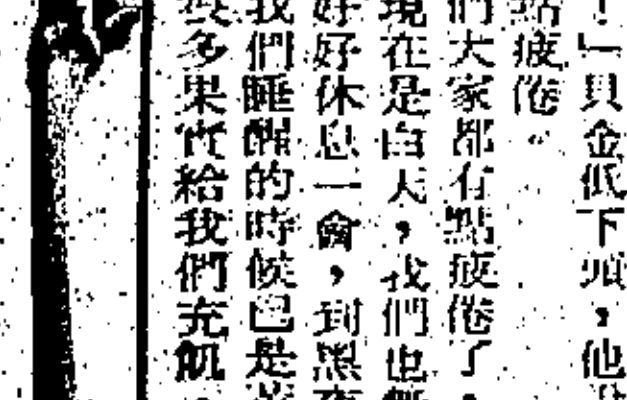 ！」貝金低下頭，他
點疲倦。
們大家都有點疲倦了，
現在是白天，我們也暫
好好休息一會，到黑夜
我們睡醒的時候已是
多果實給我們充飢，